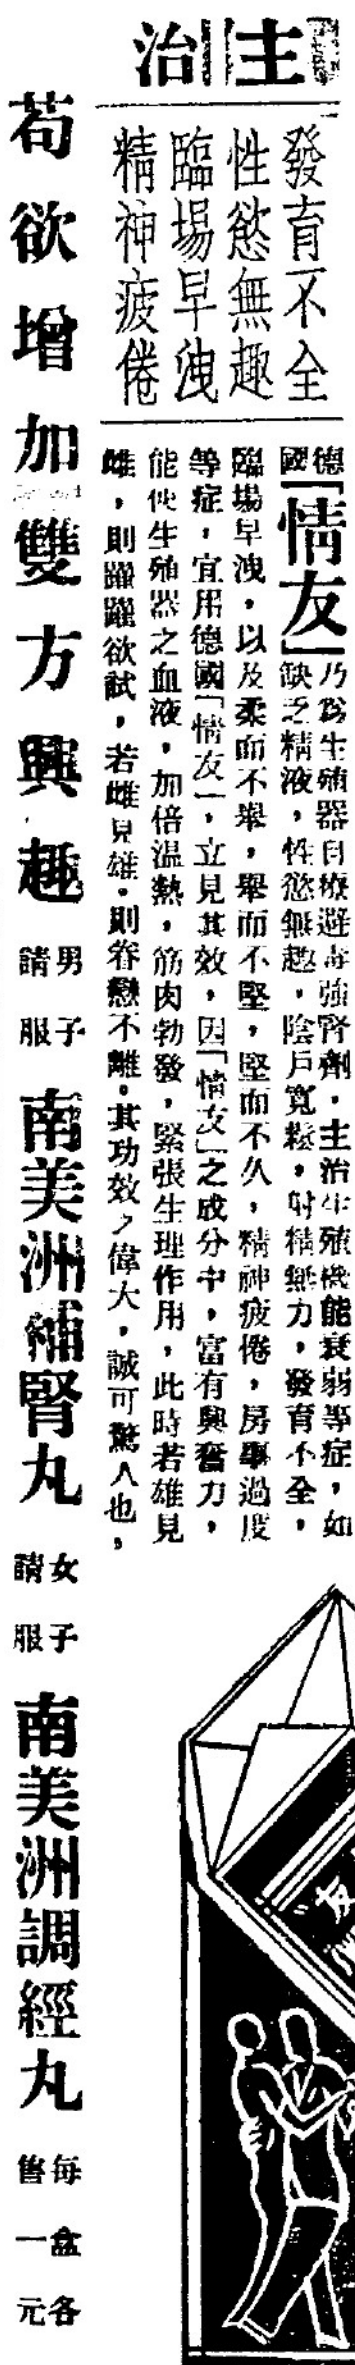 主治
發育不全
性慾無趣
臨場早洩
精神疲倦
德國「情友」乃為生殖器自療避毒強腎劑，主治生殖機能衰弱等症，如
缺乏精液，性慾無趣，陰戶寬鬆，射精無力，發育不全，
臨場早洩，以及柔而不舉，舉而不堅，堅而不久，精神疲倦，房事過度
等症，宜用德國「情友」，立見其效，因「情友」之成分中，富有興奮力，
能使生殖器之血液，加倍溫熱，筋肉勃發，緊張生理作用，此時若雄見
雌，則躍躍欲試，若雌見雄。則眷戀不離。其功效之偉大，誠可驚人也，
苟欲增加雙方興趣
男子請服
南美洲補腎丸
女子請服
南美洲調經丸
每盒各售一元